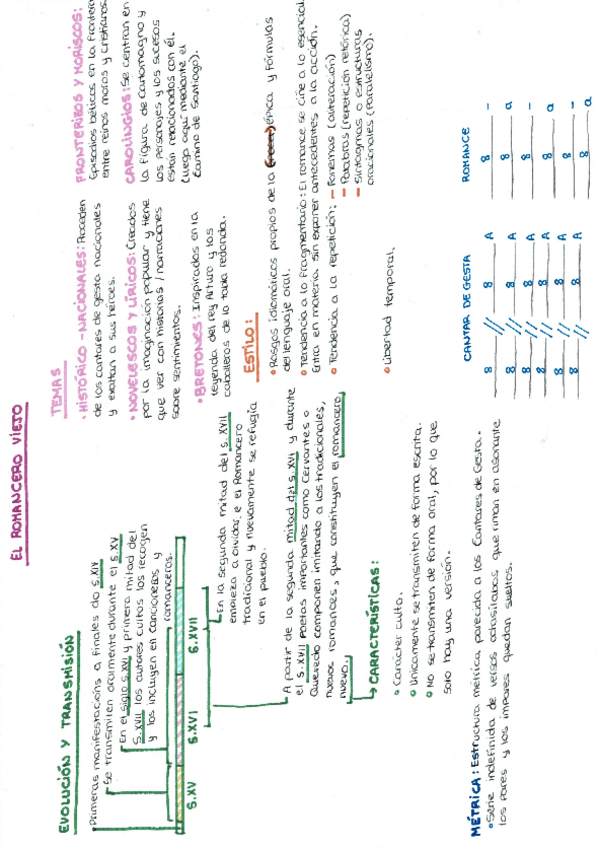 EL ROMANCERO VIEJO
EVOLUCIÓN Y TRANSMISIÓN
Primeras manifestacións a finales do s. XIV
Se transmiten oralmente durante el s. XV
En el siglo s. XVI y primera mitad del
s. XVII los autores cultos los recogen
y los incluyen en cancioneros y
romanceros.
S.XV
S.XVI
S.XVII
En la segunda mitad del s. XVII
empieza a olvidarse el Romancero
tradicional y nuevamente se refugia
en el pueblo.
A partir de la segunda mitad del s. XVI y durante
el s. XVII Poetas importantes como Cervantes o
Quevedo componen imitando a los tradicionales,
nuevos romances, que constituyen el romancero
nuevo.
CARACTERÍSTICAS:
Carácter culto.
Únicamente se transmiten de forma escrita.
No se transmiten de forma oral, por lo que
solo hay una versión.
TEMAS
HISTÓRICO-NACIONALES: Proceden
de los cantares de gesta nacionales
y exaltan a sus héroes.
NOVELESCOS Y LÍRICOS: Creados
por la imaginación popular y tiene
que ver con historias / narraciones
sobre sentimientos.
BRETONES: Inspirados en la
leyenda del rey Arturo y los
caballeros de la tabla redonda.
FRONTERIZOS Y MORISCOS:
Episodios bélicos en la frontera
entre reinos moros y cristianos.
CAROLINGIOS: Se centran en
la figura de Carlomagno y
los personajes y los sucesos
están relacionados con él.
(Llega aquí mediante el
Camino de Santiago).
ESTILO:
Rasgos idiomáticos propios de la épica y fórmulas
del lenguaje oral.
Tendencia a lo fragmentario: El romance se ciñe a lo esencial.
Entra en materia sin exponer antecedentes a la acción.
Tendencia a la repetición: - Fonemas (aliteración)
- Palabras (repetición retórica)
- Sintagmas o estructuras
oracionales (Paralelismo).
Libertad temporal.
MÉTRICA: Estructura métrica parecida a los Cantares de Gesta.
Serie indefinida de versos octosílabos, que riman en asonante
los pares y los impares quedan sueltos.
CANTAR DE GESTA
8 // 8 A
8 // 8 A
8 // 8 A
8 // 8 A
8 // 8 A
ROMANCE
8 -
8 a
8 -
8 a
8 -
8 a